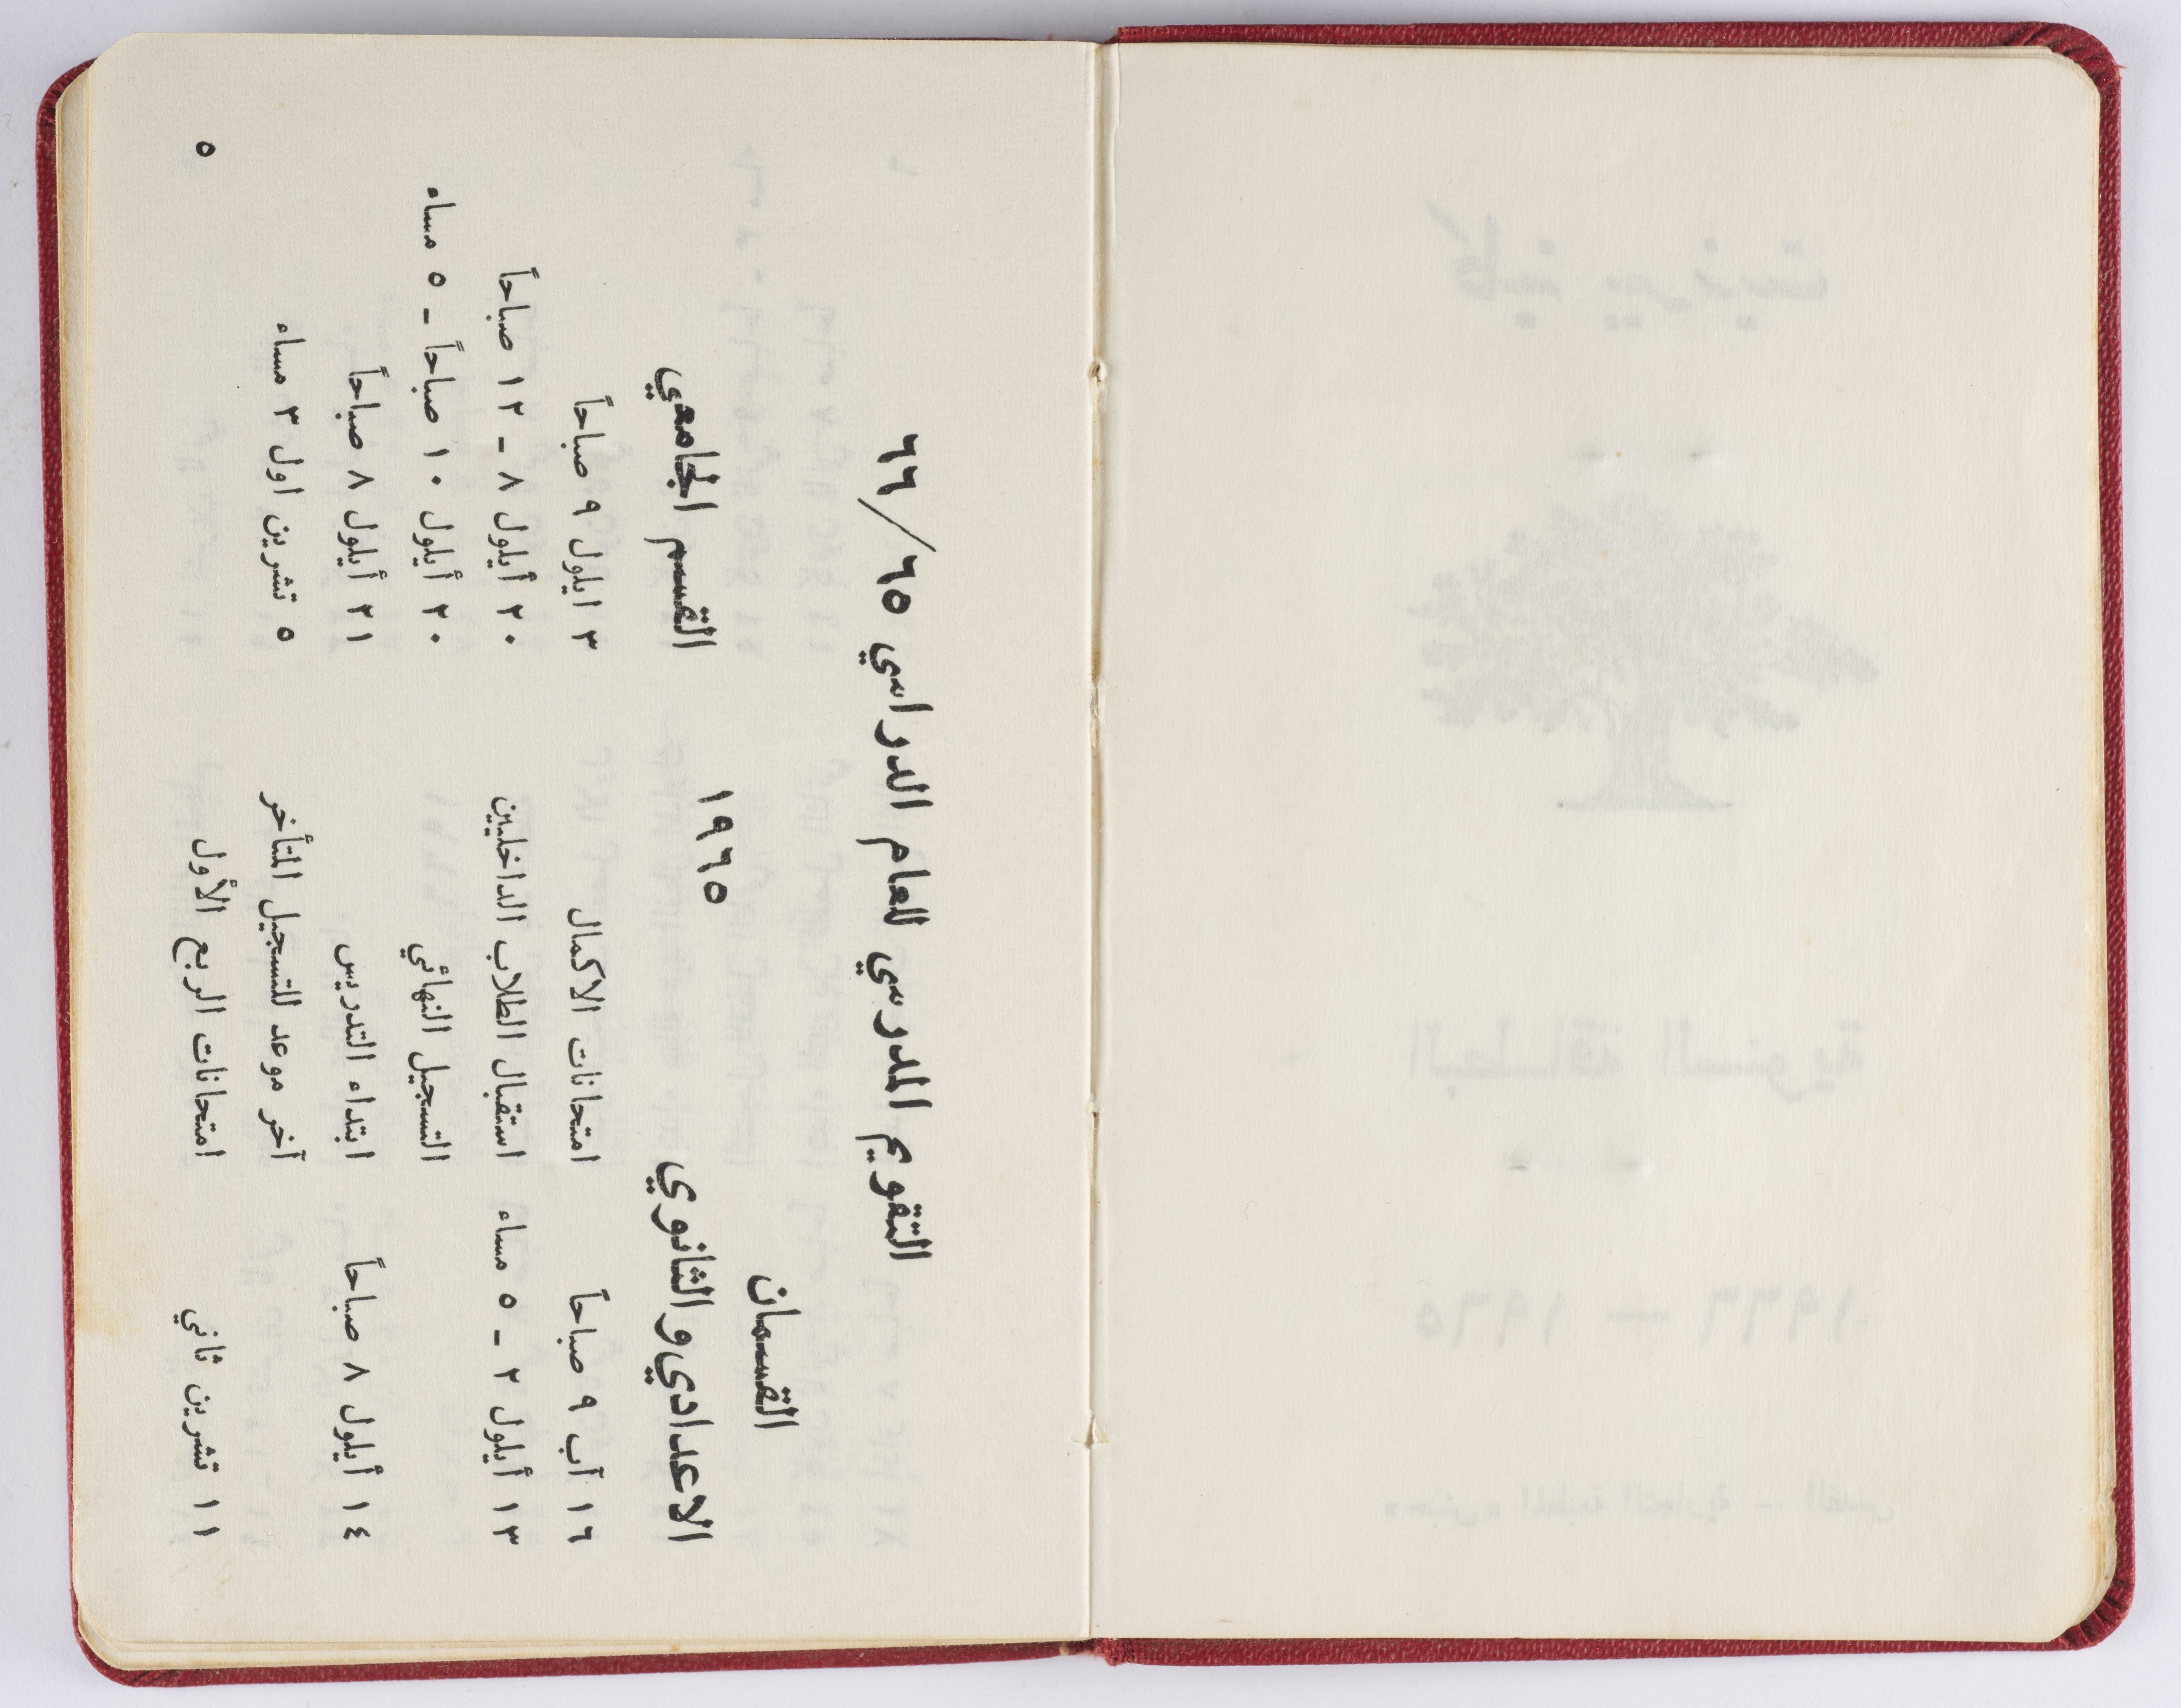 التقويم المدرسي للعام الدراسي ٦٥/٦٦
القسمان
الاعدادي والثانوي ١٩٦٥ القسم الجامعي
١٦ آب ٩ صباحاً امتحانات الاكمال ٣ ايلول ٩ صباحاً
١٣ أيلول ٢ - ٥ مساء استقبال الطلاب الداخليين ٢٠ أيلول ٨ - ١٢ صباحاً
التسجيل النهائي ٢٠ أيلول ١٠ صباحاً - ٥ مساء
١٤ أيلول ٨ صباحاً ابتداء التدريس ٢١ أيلول ٨ صباحاً
آخر موعد للتسجيل المتأخر ٥ تشرين اول ٣ مساء
١١ تشرين ثاني امتحانات الربع الأول
٥